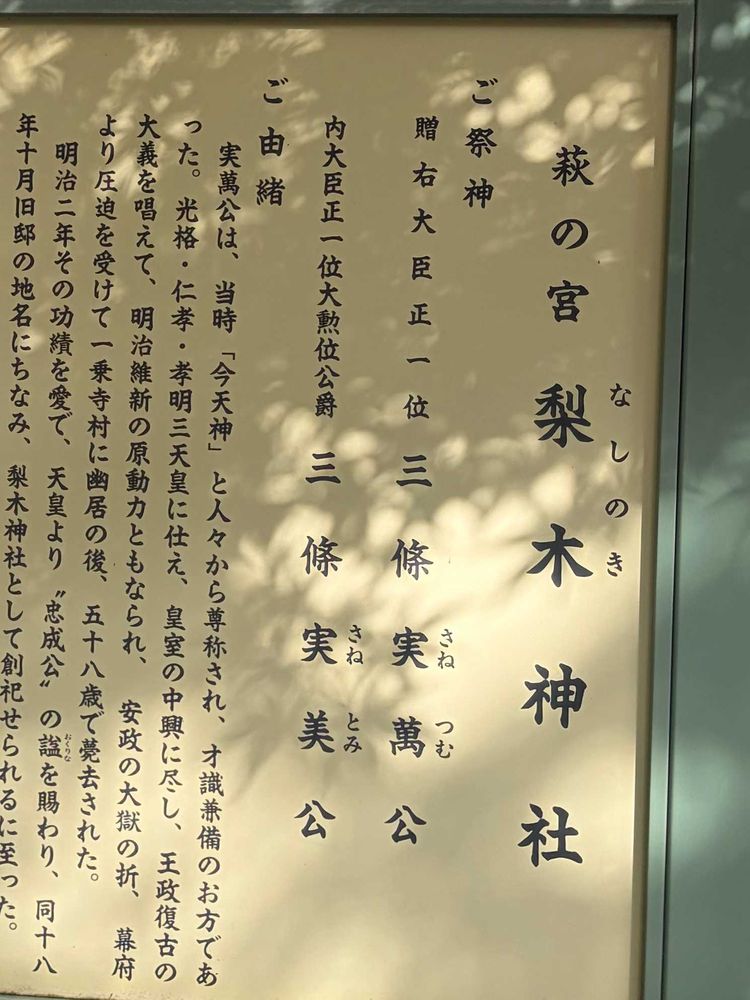 萩の宮 梨木神社
なしのき
ご祭神
贈右大臣正一位 三條実萬公
さね つむ
内大臣正一位大勲位公爵 三條実美公
さね とみ
ご由緒
実萬公は、当時「今天神」と人々から尊称され、才識兼備のお方であ
った。光格・仁孝・孝明三天皇に仕え、皇室の中興に尽し、王政復古の
大義を唱えて、明治維新の原動力ともなられ、安政の大獄の折、幕府
より圧迫を受けて一乗寺村に幽居の後、五十八歳で薨去された。
明治二年その功績を愛で、天皇より〝忠成公〟の諡を賜わり、同十八
おくりな
年十月旧邸の地名にちなみ、梨木神社として創祀せられるに至った。